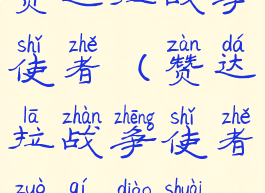 赞达拉战争
shǐ zhě zàn dá
使者（赞达
lā zhàn zhēng shǐ zhě
拉战争使者
zuò qí diào shuài